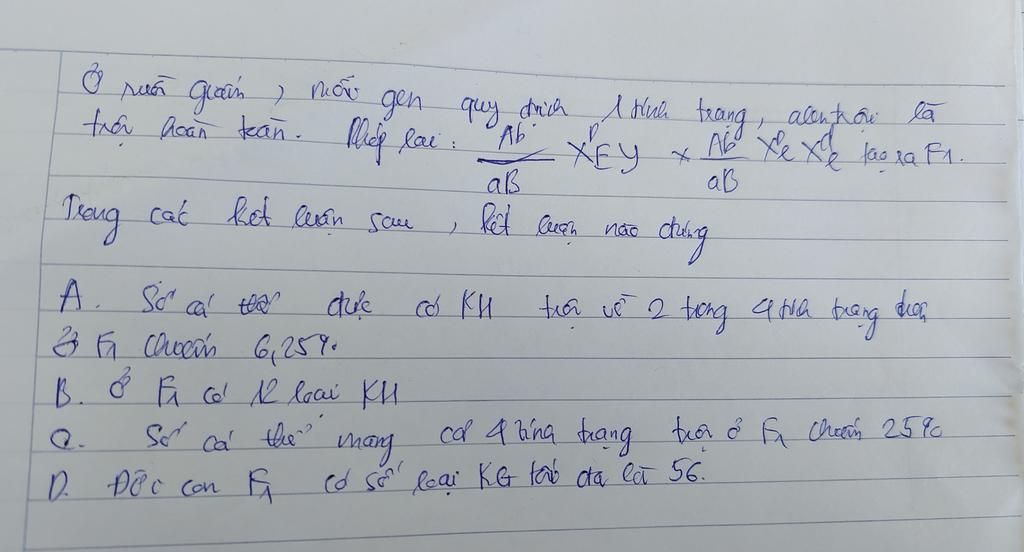 Ở ruồi giấm, mỗi gen quy định 1 tính trạng, alen trội là
trội hoàn toàn. Phép lai: Ab/aB X^D_E Y × Ab/aB X^D_e X^d_e tạo ra F1.
Trong các kết luận sau, kết luận nào đúng
A. Số cá thể đực có KH trội về 2 trong 4 tính trạng trên
ở F1 chiếm 6,25%
B. Ở F1 có 12 loại KH
C. Số cá thể mang cả 4 tính trạng trội ở F1 chiếm 25%
D. Đời con F1 có số loại KG tối đa là 56.